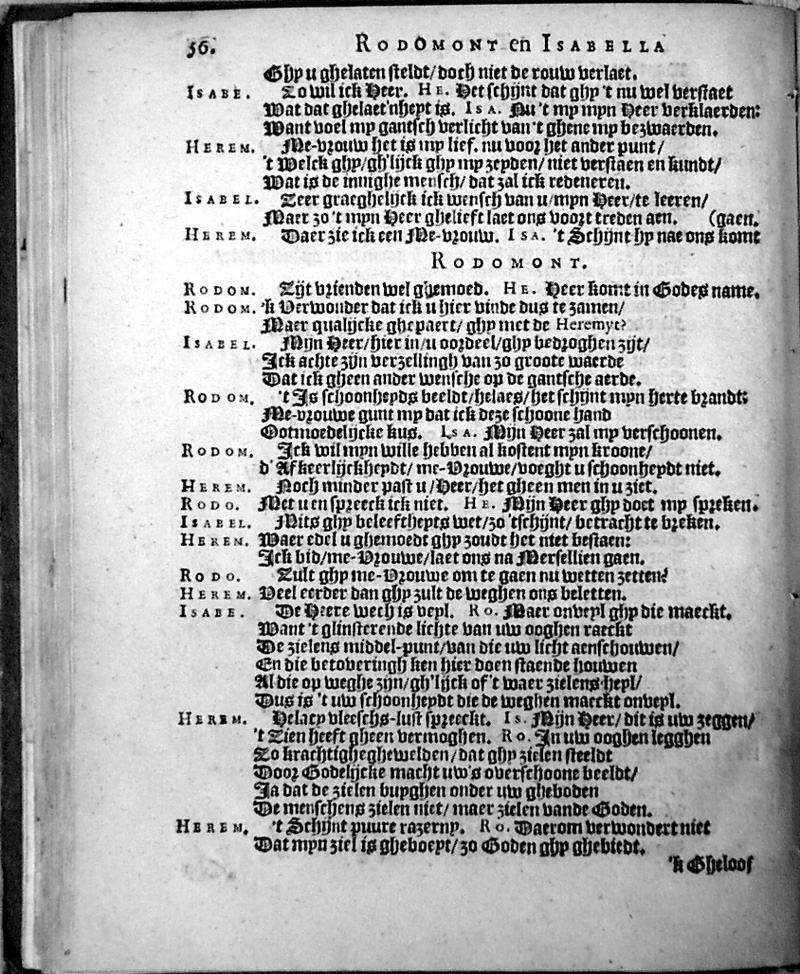 56. RODOMONT en ISABELLA
Ghy u ghelaten steldt/ doch niet de rouw verlaet.
ISABE. Zo wil ick Heer. HE. Het schijnt dat ghy 't nu wel verstaet
Wat dat ghelaet'nheyt is. ISA. Nu 't my mijn Heer verklaerden:
Want voel my gantsch verlicht van 't ghene my bezwaerden.
HEREM. Me-vrouw het is my lief. nu voor het ander punt/
't Welck ghy/ gh'lijck ghy my zeyden/ niet verstaen en kundt/
Wat is de innighe mensch/ dat zal ick redeneren.
ISABEL. Zeer graeghelijck ick wensch van u/ mijn Heer/ te leeren/
Maer zo 't mijn Heer ghelieft laet ons voort treden aen. (gaen.
HEREM. Daer zie ick een Me-vrouw. ISA. 't Schijnt hy nae ons komt
RODOMONT.
RODOM. Zijt vrienden wel ghemoed. HE. Heer komt in Godes name.
RODOM. 'k Verwonder dat ick u hier vinde dus te zamen/
Maer qualijcke ghepaert/ ghy met de Heremyt?
ISABEL. Mijn Heer/ hier in/ u oordeel/ ghy bedroghen zijt/
Ick achte zijn verzellingh van zo groote waerde
Dat ick gheen ander wensche op de gantsche aerde.
RODOM. 't Is schoonheyds beeldt/ helaes/ het schijnt mijn herte brandt:
Me-vrouwe gunt my dat ick deze schoone hand
Ootmoedelijcke kus. ISA. Mijn Heer zal my verschoonen.
RODOM. Ick wil mijn wille hebben al kostent mijn kroone/
d'Afkeerlijckheydt/ me-Vrouwe/ voeght u schoonheydt niet.
HEREM. Noch minder past u/ Heer/ het gheen men in u ziet.
RODO. Met u en spreeck ick niet. HE. Mijn Heer ghy doet my spreken.
ISABEL. Mits ghy beleeftheyts wet/ zo 'tschijnt/ betracht te breken.
HEREM. Maer edel u ghemoedt ghy zoudt het niet bestaen:
Ick bid/ me-Vrouwe/ laet ons na Mersellien gaen.
RODO. Zult ghy me-Vrouwe om te gaen nu wetten zetten?
HEREM. Veel eerder dan ghy zult de weghen ons beletten.
ISABE. De Heere wech is veyl. RO. Maer onveyl ghy die maeckt.
Want 't glinsterende lichte van uw ooghen raeckt
De zielens middel-punt/ van die uw licht aenschouwen/
En die betoveringh ken hier doen staende houwen
Al die op weghe zijn/ gh'lijck of 't waer zielens-heyl/
Dus is 't uw schoonheydt die de weghen maeckt onveyl.
HEREM. Helacy vleeschs-lust spreeckt. IS. Mijn Heer/ dit is uw zeggen/
't Zien heeft gheen vermoghen. RO. In uw ooghen legghen
Zo krachtigheghewelden/ dat ghy zielen steeldt
Door Godelijcke macht uw's overschoone beeldt/
Ja dat de zielen buyghen onder uw gheboden
De menschens zielen niet/ maer zielen vande Goden.
HEREM. 't Schijnt puure razerny. RO. Daerom verwondert niet
Dat mijn ziel is gheboeyt/ zo Goden ghy ghebiedt.
'k Gheloof